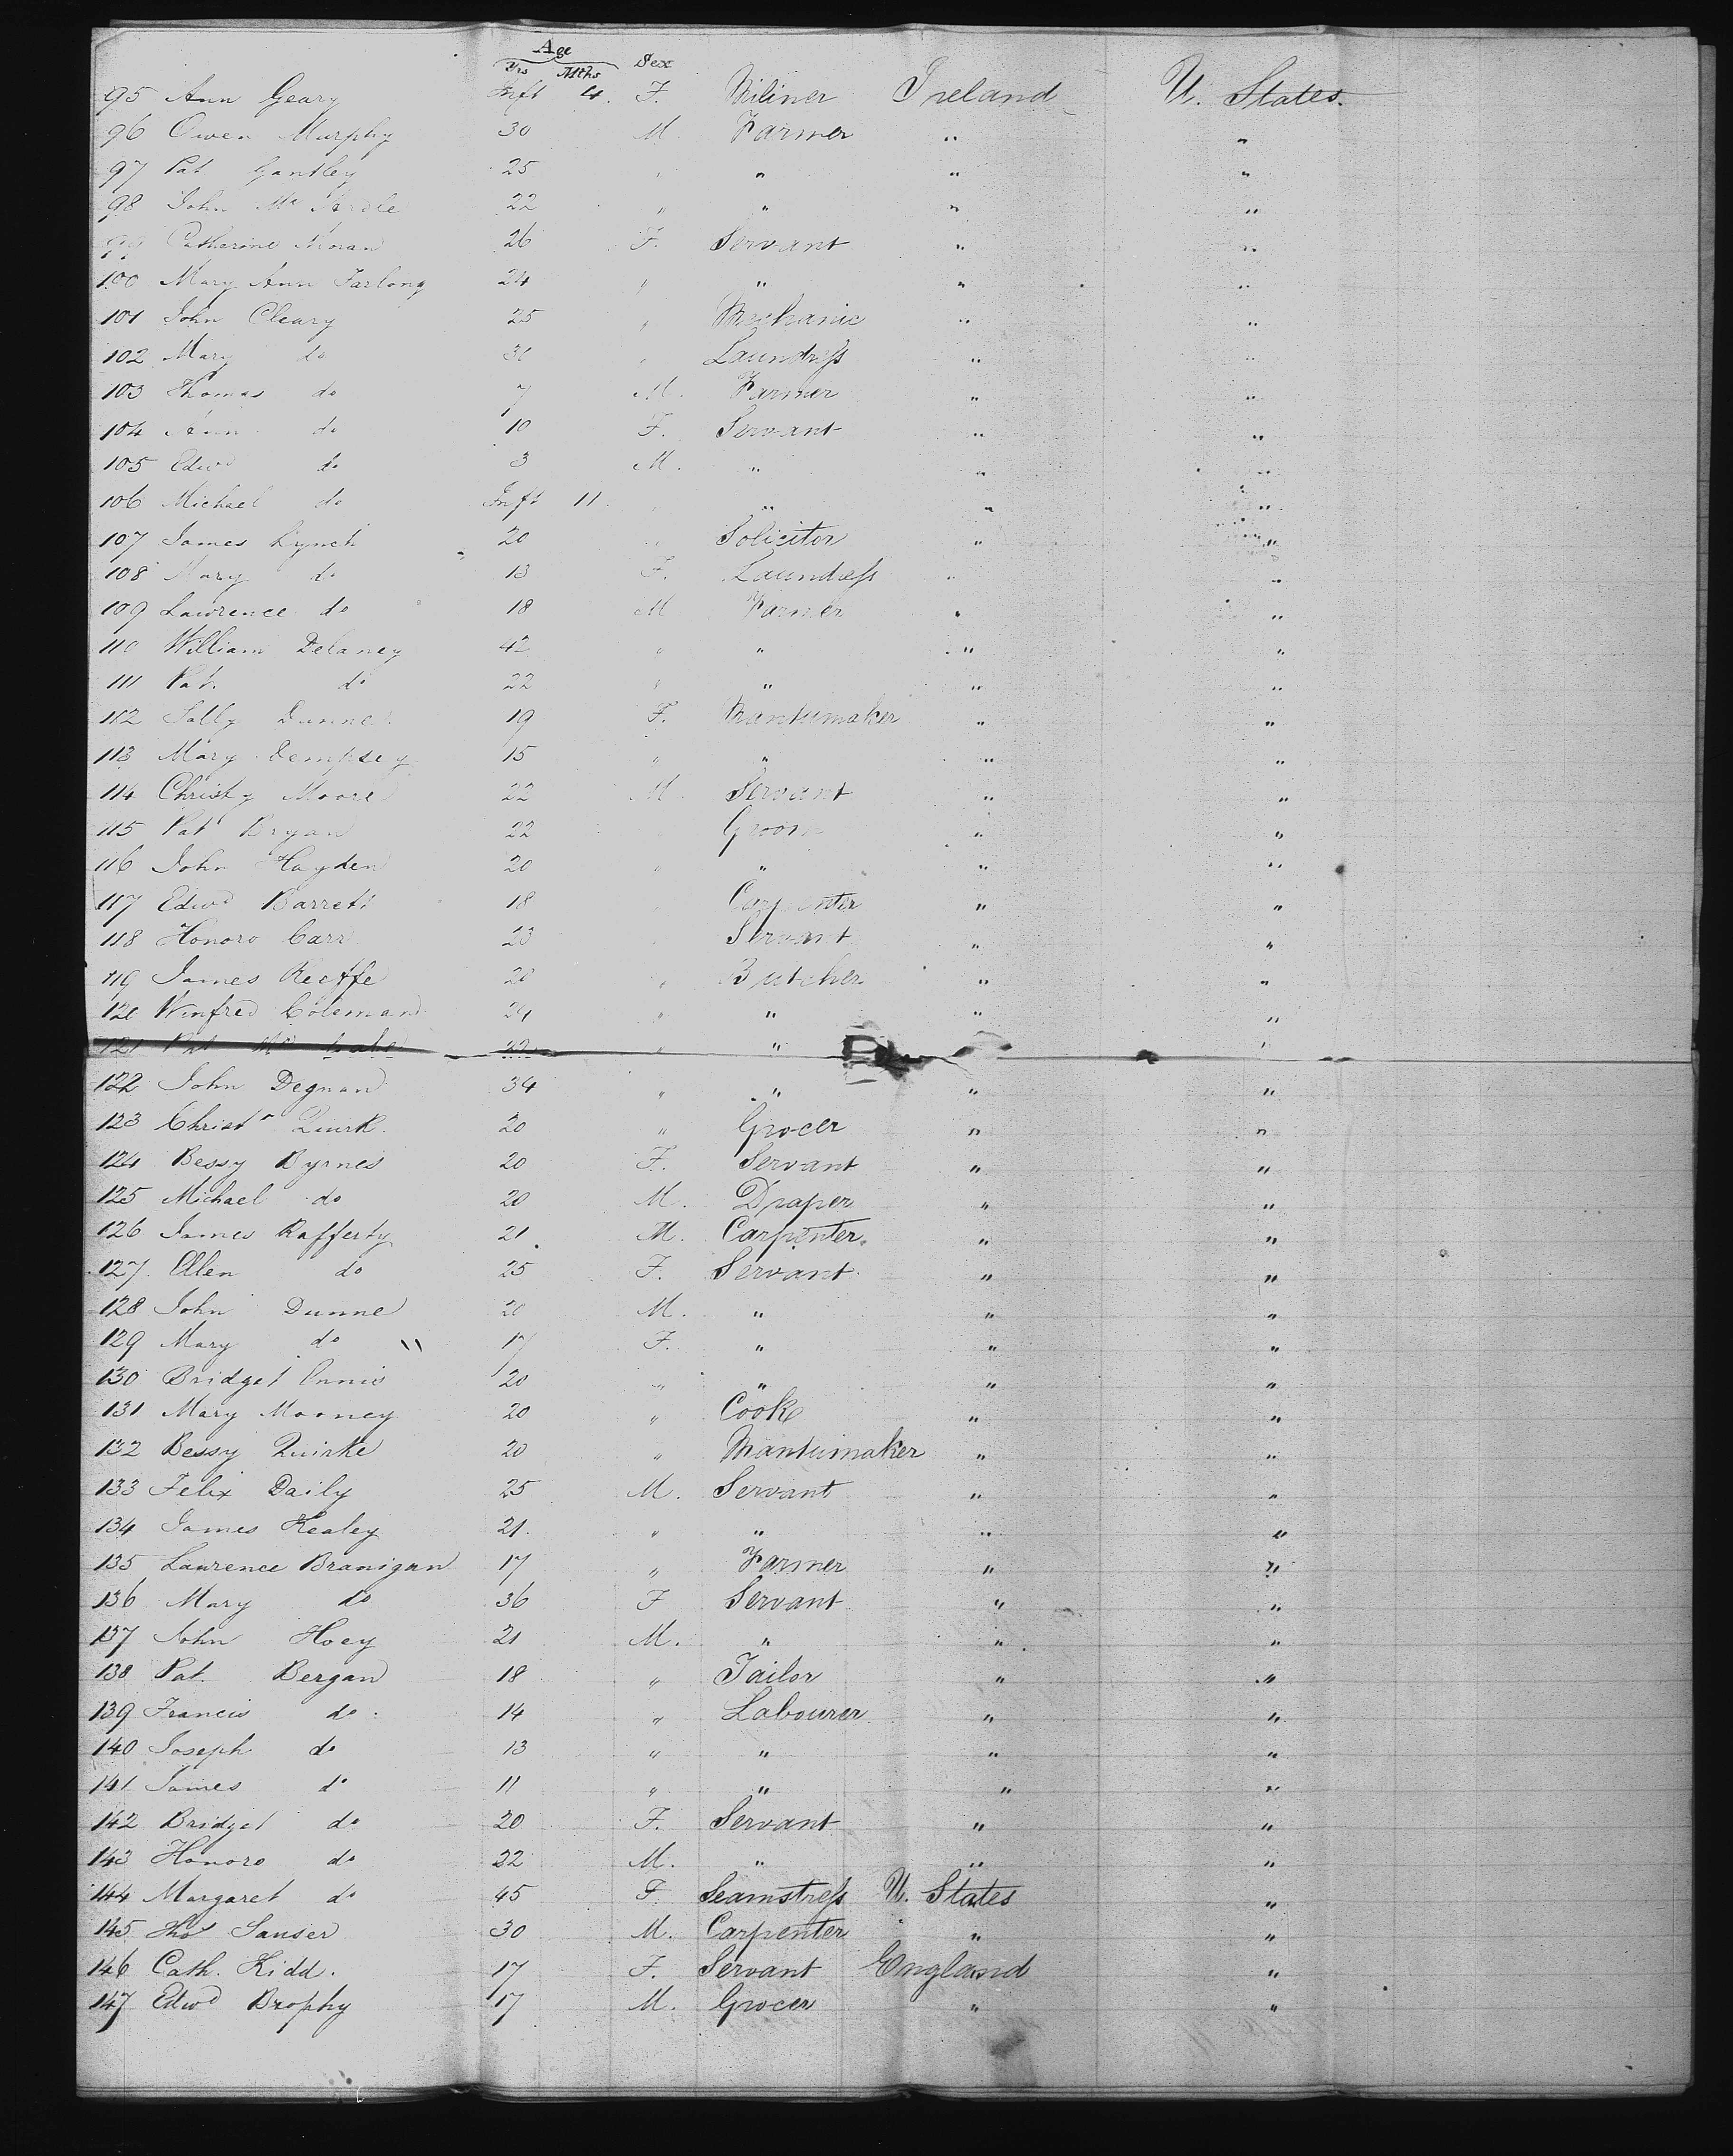 Age
Yrs Mths Sex
95 Ann Geary Inft 4. F. Miliner Ireland U. States.
96 Owen Murphy 30 M. Farmer " "
97 Pat Gantley 25 " " " "
98 John Mc Ardle 22 " " " "
99 Catherine Moran 26 F. Servant " "
100 Mary Ann Farlong 24 " " " "
101 John Cleary 25 " Mechanic " "
102 Mary do 30 " Laundress " "
103 Thomas do 7 M. Farmer " "
104 Ann do 10 F. Servant " "
105 Edwd do 3 M. " " "
106 Michael do Inft 11. " " " "
107 James Lynch 20 " Solicitor " "
108 Mary do 13 F. Laundress " "
109 Lawrence do 18 M Farmer " "
110 William Delaney 42 " " " "
111 Pat. do 22 " " " "
112 Sally Dunne 19 F. Mantumaker " "
113 Mary Dempsey 15 " " " "
114 Christy Moore 22 M. Servant " "
115 Pat Bryan 22 Groom " "
116 John Hayden 20 " " " "
117 Edwd Barrett 18 Carpenter " "
118 Honoro Carr 23 Servant " "
119 James Keeffe 20 " Butcher " "
120 Winfred Coleman 24 " " " "
121 Pat Mc " " "
122 John Degnan 34 " " " "
123 Christr Quirk. 20 " Grocer " "
124 Bessy Byrnes 20 F. Servant " "
125 Michael do 20 M. Draper " "
126 James Rafferty 21. M. Carpenter. " "
127. Ellen do 25 F. Servant. " "
128 John Dunne 20 M. " " "
129 Mary do " 17 F. " " "
130 Bridget Ennis 20 " " " "
131 Mary Mooney 20 " Cook " "
132 Bessy Quirke 20 " Mantumaker " "
133 Felix Daily 25 M. Servant " "
134 James Kealey 21. " " " "
135 Laurence Branigan 17 " Farmer " "
136 Mary do 36 F Servant " "
137 John Hoey 21 M. " " "
138 Pat. Bergan 18 " Tailor " "
139 Francis do 14 " Labourer " "
140 Joseph do 13 " " " "
141 James do 11 " " " "
142 Bridget do 20 F. Servant " "
143 Honoro do 22 M. " " "
144 Margaret do 45 F Seamstress U. States "
145 Thos Sanser 30 M. Carpenter " "
146 Cath. Kidd. 17 F. Servant England "
147 Edwd Brophy 17 M. Grocer " "